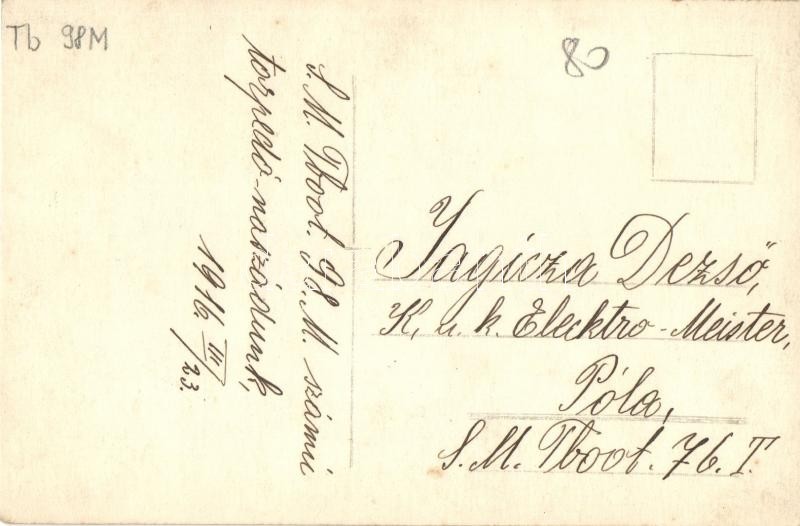 Tb 98M
80
S. M. Tboot. 98. M. számú
torpedó-naszádunk,
1916 III/23.
Jagicza Dezső,
K. u. k. Elecktro-Meister,
Póla,
S. M. Tboot. 76. T.